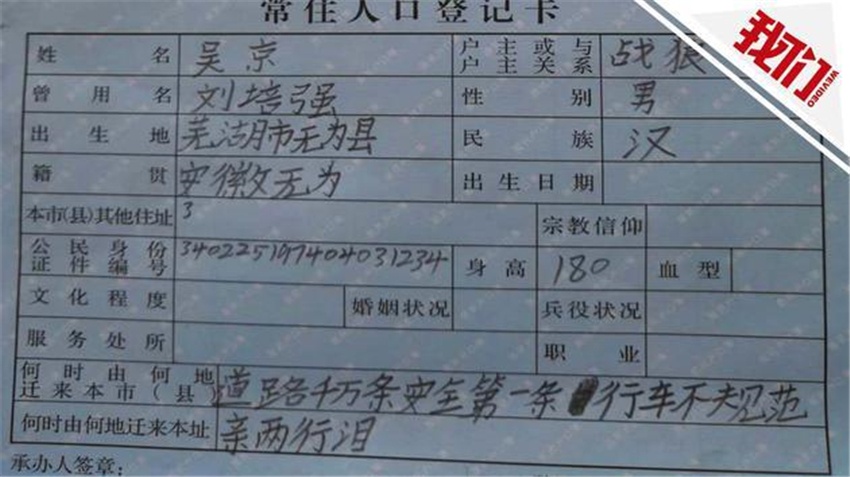 常住人口登记卡
我们
WEVIDEO
姓名 吴京 户主或与户主关系 战狼
曾用名 刘培强 性别 男
出生地 芜湖市无为县 民族 汉
籍贯 安徽无为 出生日期
本市(县)其他住址 3 宗教信仰
公民身份证件编号 340225197404031234 身高 180 血型
文化程度 婚姻状况 兵役状况
服务处所 职业
何时由何地迁来本市(县) 道路千万条安全第一条 行车不夫规范
何时由何地迁来本址 亲两行泪
承办人签章：